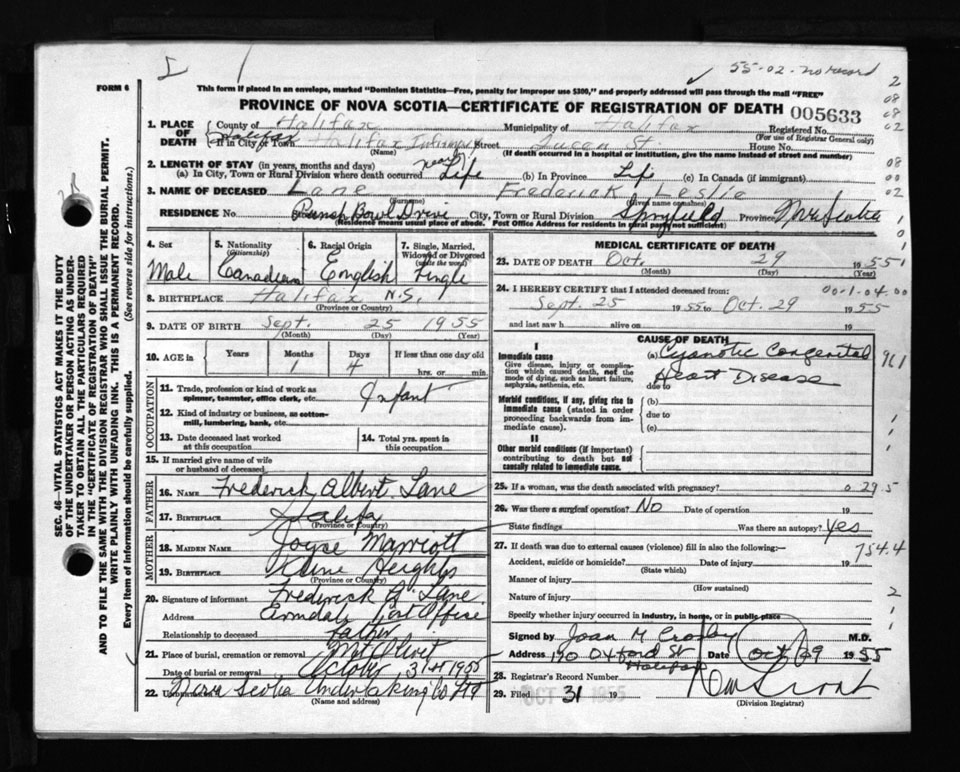 55-02-no record
FORM 6
This form if placed in an envelope, marked "Dominion Statistics—Free, penalty for improper use $300," and properly addressed will pass through the mail "FREE"
PROVINCE OF NOVA SCOTIA—CERTIFICATE OF REGISTRATION OF DEATH 005633
1. PLACE OF DEATH
County of Halifax Municipality of Halifax Registered No.
(For use of Registrar General only)
If in City or Town Halifax Halifax Infirmary Street Queen St. House No.
(Name) (If death occurred in a hospital or institution, give the name instead of street and number)
2. LENGTH OF STAY (in years, months and days)
(a) In City, Town or Rural Division where death occurred Life (b) In Province Life (c) In Canada (if immigrant)
3. NAME OF DECEASED Lane Frederick Leslie
(Surname) (Given name or names)
RESIDENCE No. Punch Bowl Drive City, Town or Rural Division Spryfield Province Nova Scotia
(Residence means usual place of abode. Post Office Address for residents in rural parts not sufficient)
4. Sex Male
5. Nationality (Citizenship) Canadian
6. Racial Origin English
7. Single, Married, Widowed or Divorced (write the word) Single
8. BIRTHPLACE Halifax N.S.
(Province or Country)
9. DATE OF BIRTH Sept. 25 1955
(Month) (Day) (Year)
10. AGE in Years Months 1 Days 4 If less than one day old hrs. or min.
OCCUPATION
11. Trade, profession or kind of work as spinner, teamster, office clerk, etc. Infant
12. Kind of industry or business, as cotton-mill, lumbering, bank, etc.
13. Date deceased last worked at this occupation
14. Total yrs. spent in this occupation
15. If married give name of wife or husband of deceased
FATHER
16. NAME Frederick Albert Lane
17. BIRTHPLACE Halifax
(Province or Country)
MOTHER
18. MAIDEN NAME Joyce Marriott
19. BIRTHPLACE Heights
(Province or Country)
20. Signature of informant Frederick A. Lane
Address Armdale Post Office
Relationship to deceased father
21. Place of burial, cremation or removal Mt Olivet
Date of burial or removal October 31st 1955
22. UNDERTAKER Nova Scotia Undertaking Co Ltd
(Name and address)
MEDICAL CERTIFICATE OF DEATH
23. DATE OF DEATH Oct. 29 1955
(Month) (Day) (Year)
24. I HEREBY CERTIFY that I attended deceased from:
Sept. 25 1955 to Oct. 29 1955
and last saw h alive on 19
CAUSE OF DEATH
I
Immediate cause
Give disease, injury or complication which caused death, not the mode of dying, such as heart failure, asphyxia, asthenia, etc.
(a) Cyanotic Congenital
Heart Disease
due to
Morbid conditions, if any, giving rise to immediate cause (stated in order proceeding backwards from immediate cause).
(b)
due to
(c)
II
Other morbid conditions (if important) contributing to death but not causally related to immediate cause.
25. If a woman, was the death associated with pregnancy? 0 29 5
26. Was there a surgical operation? No Date of operation 19
State findings Was there an autopsy? Yes
27. If death was due to external causes (violence) fill in also the following:— 754.4
Accident, suicide or homicide? Date of injury 19
(State which)
Manner of injury
(How sustained)
Nature of injury
Specify whether injury occurred in industry, in home, or in public place
Signed by Joan M Crosby M.D.
Address 190 Oxford St Halifax Date Oct 29 1955
28. Registrar's Record Number
29. Filed OCT 31 1955
(Division Registrar)
SEC. 46—VITAL STATISTICS ACT MAKES IT THE DUTY
OF THE UNDERTAKER OR PERSON ACTING AS UNDER-
TAKER TO OBTAIN ALL THE PARTICULARS REQUIRED
IN THE "CERTIFICATE OF REGISTRATION OF DEATH"
AND TO FILE THE SAME WITH THE DIVISION REGISTRAR WHO SHALL ISSUE THE BURIAL PERMIT.
WRITE PLAINLY WITH UNFADING INK. THIS IS A PERMANENT RECORD.
Every item of information should be carefully supplied. (See reverse side for instructions.)